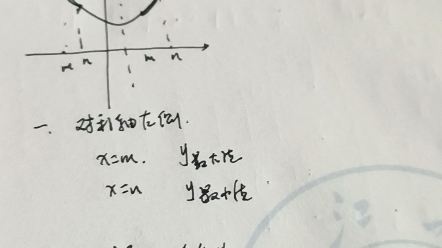 m n m n
一、对称轴左侧.
x=m. y最大值
x=n y最小值